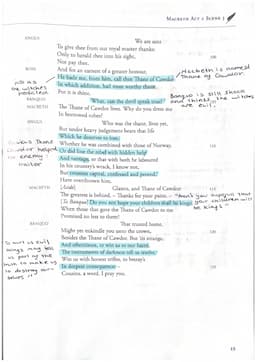 MACBETH ACT 1 SCENE 3
ANGUS
We are sent
To give thee from our royal master thanks;
Only to herald thee into his sight,
Not pay thee.
ROSS
And for an earnest of a greater honour,
He bade me, from him, call thee Thane of Cawdor:
In which addition, hail most worthy thane,
For it is thine.
Macbeth is named
Thane of Cawdor.
just as
the witches
predicted
BANQUO
What, can the devil speak true?
MACBETH
The Thane of Cawdor lives. Why do you dress me
In borrowed robes?
Banquo is still shock
and thinks the witches
are evil.
ANGUS
Who was the thane, lives yet,
But under heavy judgement bears that life
Which he deserves to lose.
Whether he was combined with those of Norway,
Or did line the rebel with hidden help
And vantage, or that with both he laboured
In his country's wrack, I know not,
But treasons capital, confessed and proved,
Have overthrown him.
Thane
Cawdor helped
the enemy
traitor
MACBETH
[Aside] Glamis, and Thane of Cawdor:
The greatest is behind. – Thanks for your pains. –
[To Banquo] Do you not hope your children shall be kings,
When those that gave the Thane of Cawdor to me
Promised no less to them?
"Don't you hope
your children will
be kings"
BANQUO
That trusted home,
Might yet enkindle you unto the crown,
Besides the Thane of Cawdor. But 'tis strange,
And oftentimes, to win us to our harm,
The instruments of darkness tell us truths;
Win us with honest trifles, to betray's
In deepest consequence –
Cousins, a word, I pray you.
evil
things may tell
us part of the
truth to make us
to destroy our-
selves"
15